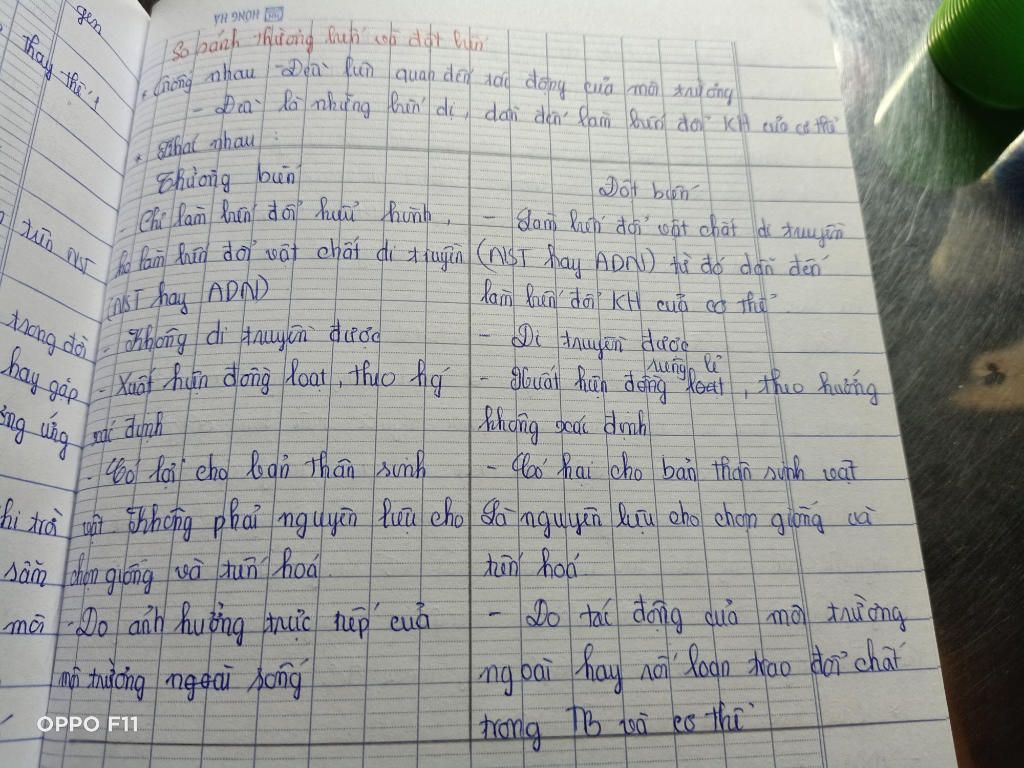 HONG HA
So sánh thường biến và đột biến
* Giống nhau - Đều liên quan đến tác động của môi trường
- Đều là những biến dị, dẫn đến làm biến đổi KH của cơ thể
* Khác nhau :
Thường biến
- Chỉ làm biến đổi kiểu hình,
ko làm biến đổi vật chất di truyền
(NST hay ADN)
- Không di truyền được
- Xuất hiện đồng loạt, theo hg
xác định
- Có lợi cho bản thân sinh
vật Không phải nguyên liệu cho
chọn giống và tiến hoá
- Do ảnh hưởng trực tiếp của
môi trường ngoài sống
Đột biến
- Làm biến đổi vật chất di truyền
(NST hay ADN) từ đó dẫn đến
làm biến đổi KH của cơ thể
- Di truyền được
riêng lẻ
- Xuất hiện đồng loạt, theo hướng
không xác định
- Có hại cho bản thân sinh vật
Là nguyên liệu cho chọn giống và
tiến hoá
- Do tác động quả môi trường
ngoài hay rối loạn trao đổi chất
trong TB và cơ thể
gen
thay thế,
NST
trong đời
hay gặp
ứng
trò
sâm
môi
OPPO F11